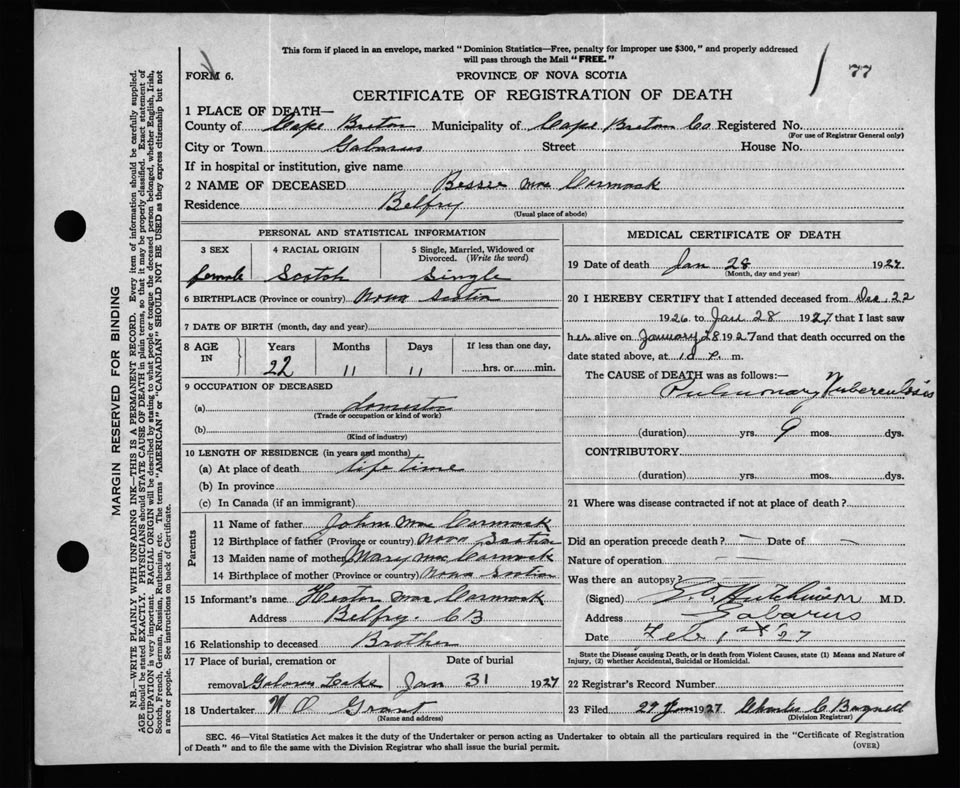 This form if placed in an envelope, marked "Dominion Statistics—Free, penalty for improper use $300," and properly addressed
will pass through the Mail "FREE."
FORM 6.
PROVINCE OF NOVA SCOTIA
77
CERTIFICATE OF REGISTRATION OF DEATH
1 PLACE OF DEATH—
County of Cape Breton Municipality of Cape Breton Co Registered No.
(For use of Registrar General only)
City or Town Gabarus Street House No.
If in hospital or institution, give name
2 NAME OF DECEASED Bessie Mac Cormack
Residence Belfry
(Usual place of abode)
PERSONAL AND STATISTICAL INFORMATION
3 SEX 4 RACIAL ORIGIN 5 Single, Married, Widowed or
Divorced. (Write the word)
female Scotch Single
6 BIRTHPLACE (Province or country) Nova Scotia
7 DATE OF BIRTH (month, day and year)
8 AGE IN Years Months Days If less than one day,
22 11 11 hrs. or min.
9 OCCUPATION OF DECEASED
(a) domestic
(Trade or occupation or kind of work)
(b)
(Kind of industry)
10 LENGTH OF RESIDENCE (in years and months)
(a) At place of death life time
(b) In province
(c) In Canada (if an immigrant)
Parents
11 Name of father John Mac Cormack
12 Birthplace of father (Province or country) Nova Scotia
13 Maiden name of mother Mary Mac Cormack
14 Birthplace of mother (Province or country) Nova Scotia
15 Informant's name Hector Mac Cormack
Address Belfry CB
16 Relationship to deceased Brother
17 Place of burial, cremation or Date of burial
removal Gabarus Lake Jan 31 1927
18 Undertaker W O Grant
(Name and address)
MEDICAL CERTIFICATE OF DEATH
19 Date of death Jan 28 1927
(Month, day and year)
20 I HEREBY CERTIFY that I attended deceased from Dec. 22
1926 to Jan 28 1927 that I last saw
her alive on January 28 1927 and that death occurred on the
date stated above, at P. m.
The CAUSE of DEATH was as follows:—
Pulmonary Tuberculosis
(duration) yrs. 9 mos. dys.
CONTRIBUTORY
(duration) yrs. mos. dys.
21 Where was disease contracted if not at place of death?
Did an operation precede death? — Date of —
Nature of operation —
Was there an autopsy? —
(Signed) Hutchinson M.D.
Address Gabarus
Date Feb 1st '27
State the Disease causing Death, or in death from Violent Causes, state (1) Means and Nature of
Injury, (2) whether Accidental, Suicidal or Homicidal.
22 Registrar's Record Number
23 Filed 29 Jan 1927 Charles C Bagnell
(Division Registrar)
SEC. 46—Vital Statistics Act makes it the duty of the Undertaker or person acting as Undertaker to obtain all the particulars required in the "Certificate of Registration
of Death" and to file the same with the Division Registrar who shall issue the burial permit.
(OVER)
MARGIN RESERVED FOR BINDING
N.B.—WRITE PLAINLY WITH UNFADING INK—THIS IS A PERMANENT RECORD. Every item of information should be carefully supplied.
AGE should be stated EXACTLY. PHYSICIANS should STATE CAUSE OF DEATH in plain terms, so that it may be properly classified. Exact statement of
OCCUPATION is very important. RACIAL ORIGIN will be described by stating to what people or tongue the deceased person belonged, whether English, Irish,
Scotch, French, German, Russian, Ruthenian, etc. The terms "AMERICAN" or "CANADIAN" SHOULD NOT BE USED as they express citizenship but not
a race or people. See instructions on back of Certificate.